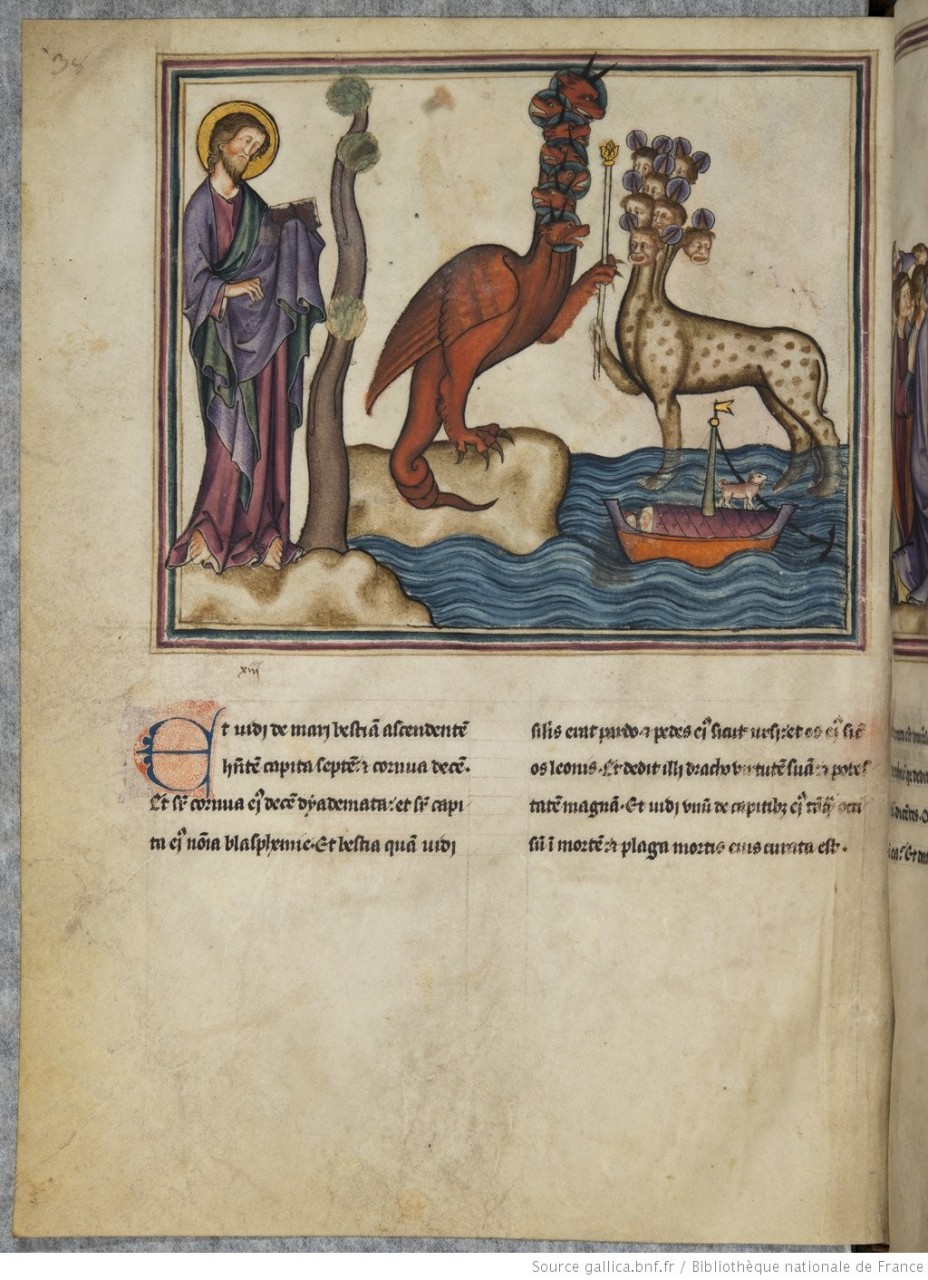 38
xiij
Et vidi de mari bestiā ascendentē
hñtē capita septē ⁊ cornua decē.
Et sr̄ cornua eꝰ decē dyademata: et sr̄ capi
ta eꝰ nōīa blasphemie. Et bestia quā vidi
silis erat pardo ⁊ pedes eꝰ sicut ursi: et os eꝰ sic̄
os leonis. Et dedit illi draco virtutē suā ⁊ potes
tatē magnā. Et vidi vnū de capitibꝫ eꝰ occi
sū ī mortē ⁊ plaga mortis eius curata est.
Source gallica.bnf.fr / Bibliothèque nationale de France